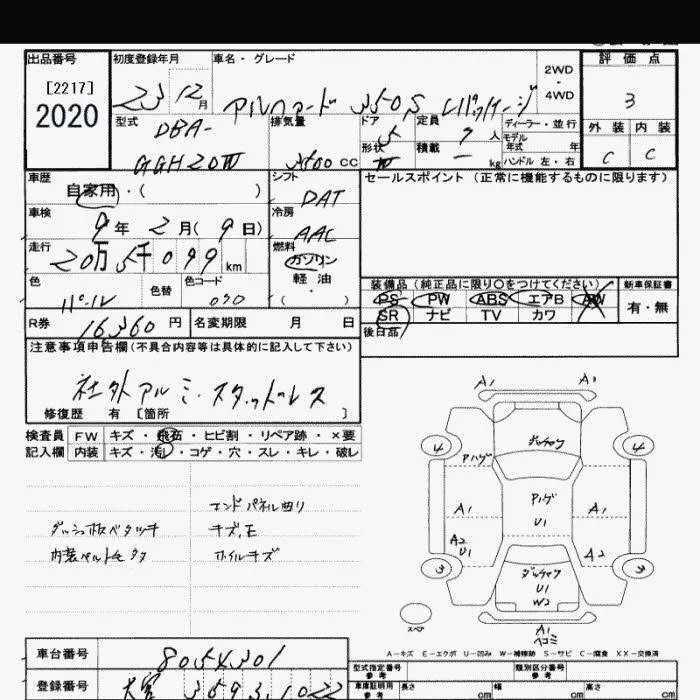 出品番号 初度登録年月 車名・グレード 2WD・4WD 評価点
[2217]
2020
23 12月 アルファード 350S 3
型式 DBA- 排気量 ドア 5 定員 7人 ディーラー・並行 外装 内装
モデル年式 年
GGH20W 3500cc 形状 積載 kg ハンドル 左・右 C C
車歴 自家用・( ) シフト DAT セールスポイント(正常に機能するものに限ります)
車検 9年 2月(9日) 冷房 AAC
走行 20万5千099km 燃料 ガソリン
軽油
( )
色 パール 色替 色コード 070
装備品(純正品に限り○をつけてください) 新車保証書
PS PW ABS エアB AW 有・無
SR ナビ TV カワ
R券 16,360円 名変期限 月 日 後日品
注意事項申告欄(不具合内容等は具体的に記入して下さい)
社外アルミ・スタッドレス
修復歴 有 [箇所 ]
検査員 FW キズ・飛石・ヒビ割・リペア跡・×要
記入欄 内装 キズ・汚レ・コゲ・穴・スレ・キレ・破レ
エンドパネル曲り
キズ,E
ホイルキズ
A1
4 4
A1 A1
U1
A2 U1 A2
3 3
U1
W2
スペア
A1
ヘコミ
A-キズ E-エクボ U-凹み W-補修跡 S-サビ C-腐食 XX-交換済
車台番号 8054301
登録番号 大宮
型式指定番号 参考 類別区分番号 参考
車庫証明用 参考 長さ cm 幅 cm 高さ cm